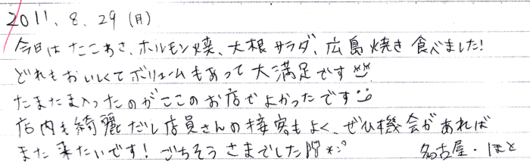 2011. 8. 29 (月)
今日は たこわさ、ホルモン焼、大根サラダ、広島焼き 食べました!
どれもおいしくてボリュームもあって大満足です
たまたま入ったのがここのお店でよかったです
店内も綺麗だし店員さんの接客もよく、ぜひ機会があれば
また来たいです! ごちそうさまでした
名古屋・はと